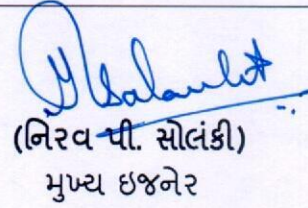 (નિરવ પી. સોલંકી)
મુખ્ય ઇજનેર